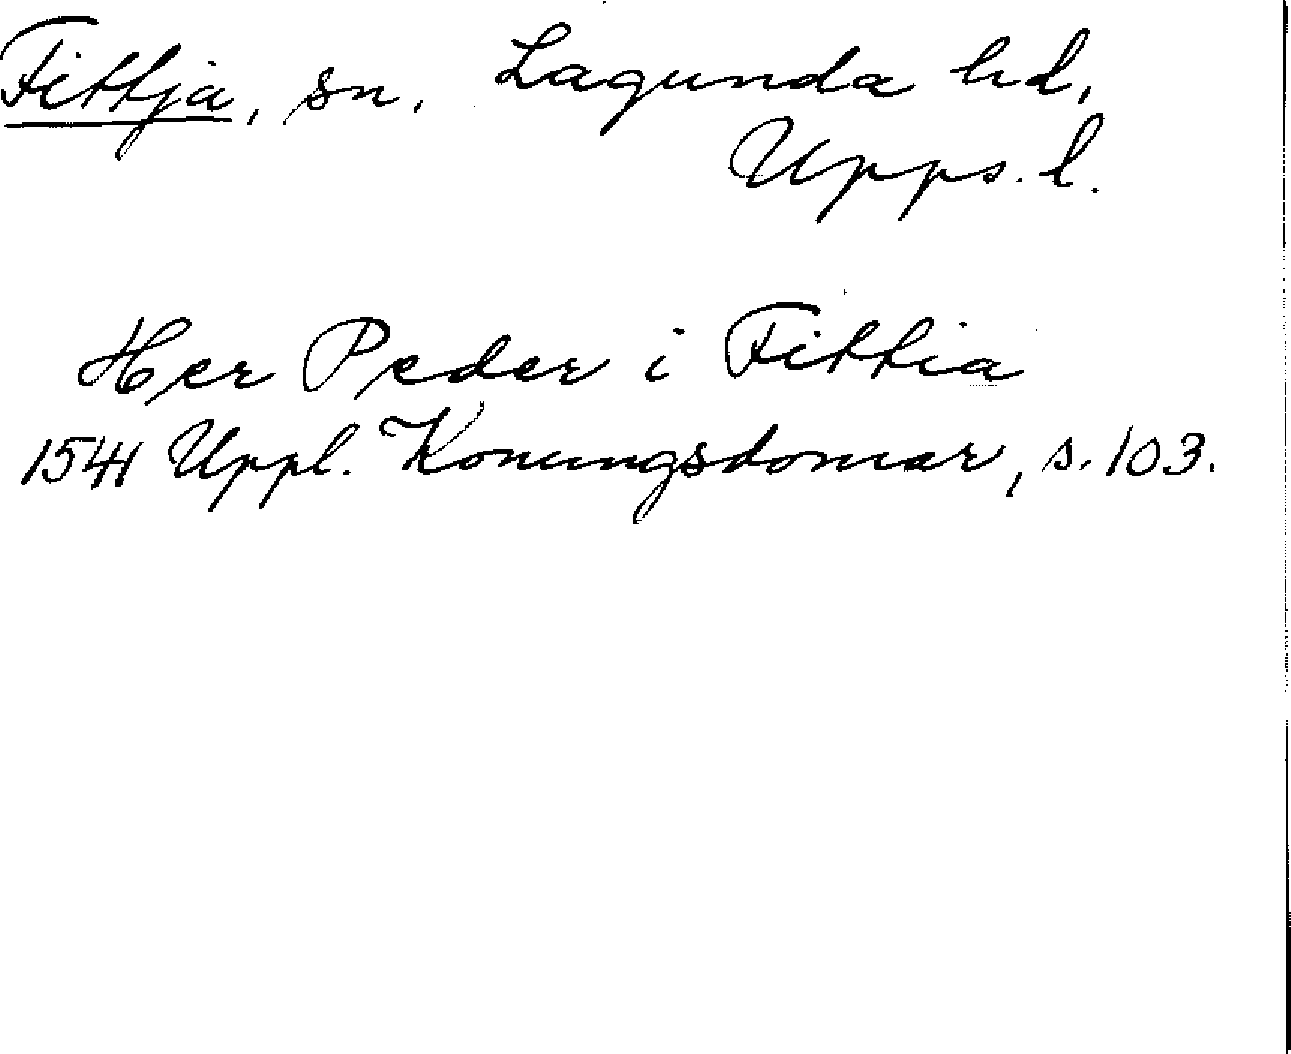 Fittja, sn. Lagunda hd,
Upps. l.
Her Peder i Fittia
1544 Uppl. Konungsdomar, s. 103.